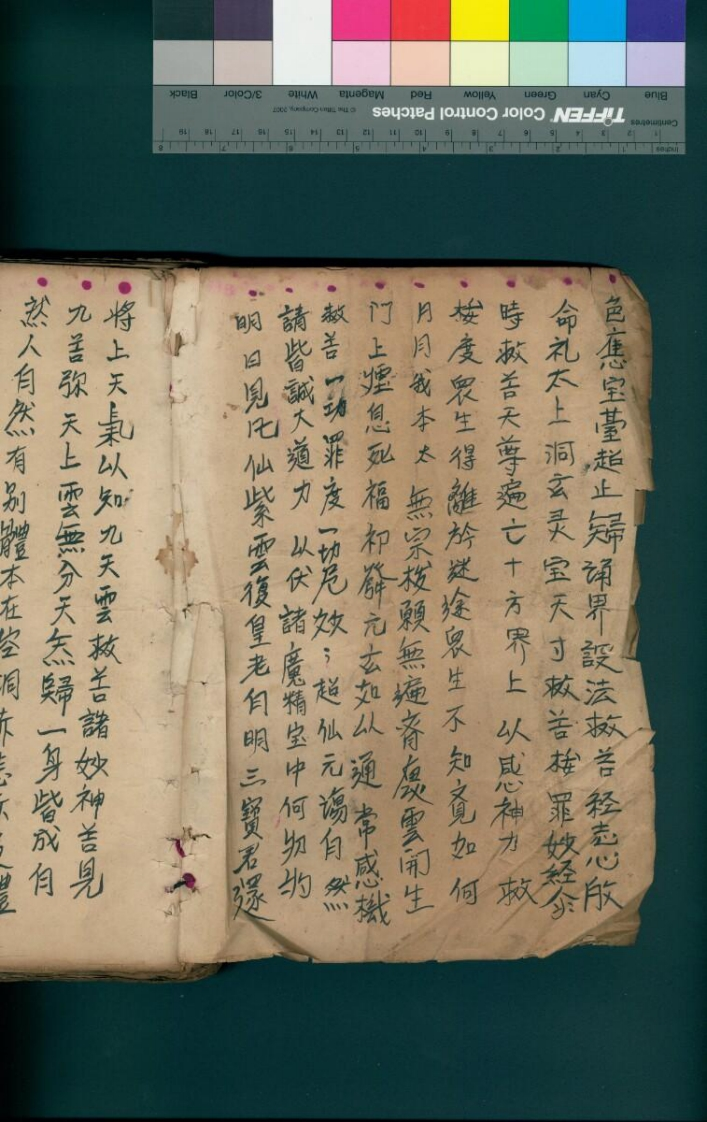 色應宝臺超止歸誦界設法救苦経志心殷
命礼太上洞玄灵宝天寸救苦拔罪妙經尒
時救苦天尊遍亡十方界上以感神力救
拔度衆生得離於迷途衆生不知竟如何
月月我本太無宗拔願無遍齊度雲開生
门上煙息死福初发元玄如以通常感機
救苦一功罪度一切厄妙〻超仙元蕩自然
請皆誠大道力以伏諸魔精宝中何物的
明日見氏仙紫雲復皇老自明三寶君還
将上天氣以知九天雲救苦諸妙神苦見
九苦弥天上雲無分天炁歸一身皆成自
然人自然有别體本在空洞
Blue Cyan Green Yellow Red Magenta White 3/Color Black
TIFFEN Color Control Patches
© The Tiffen Company, 2007
Centimetres
Inches